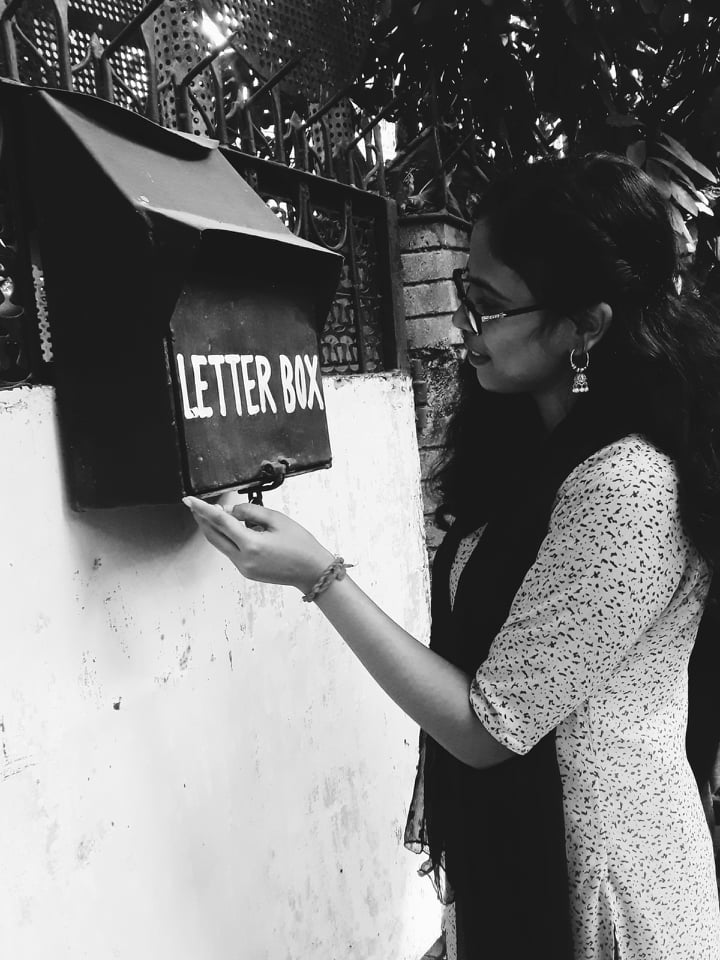 LETTER BOX